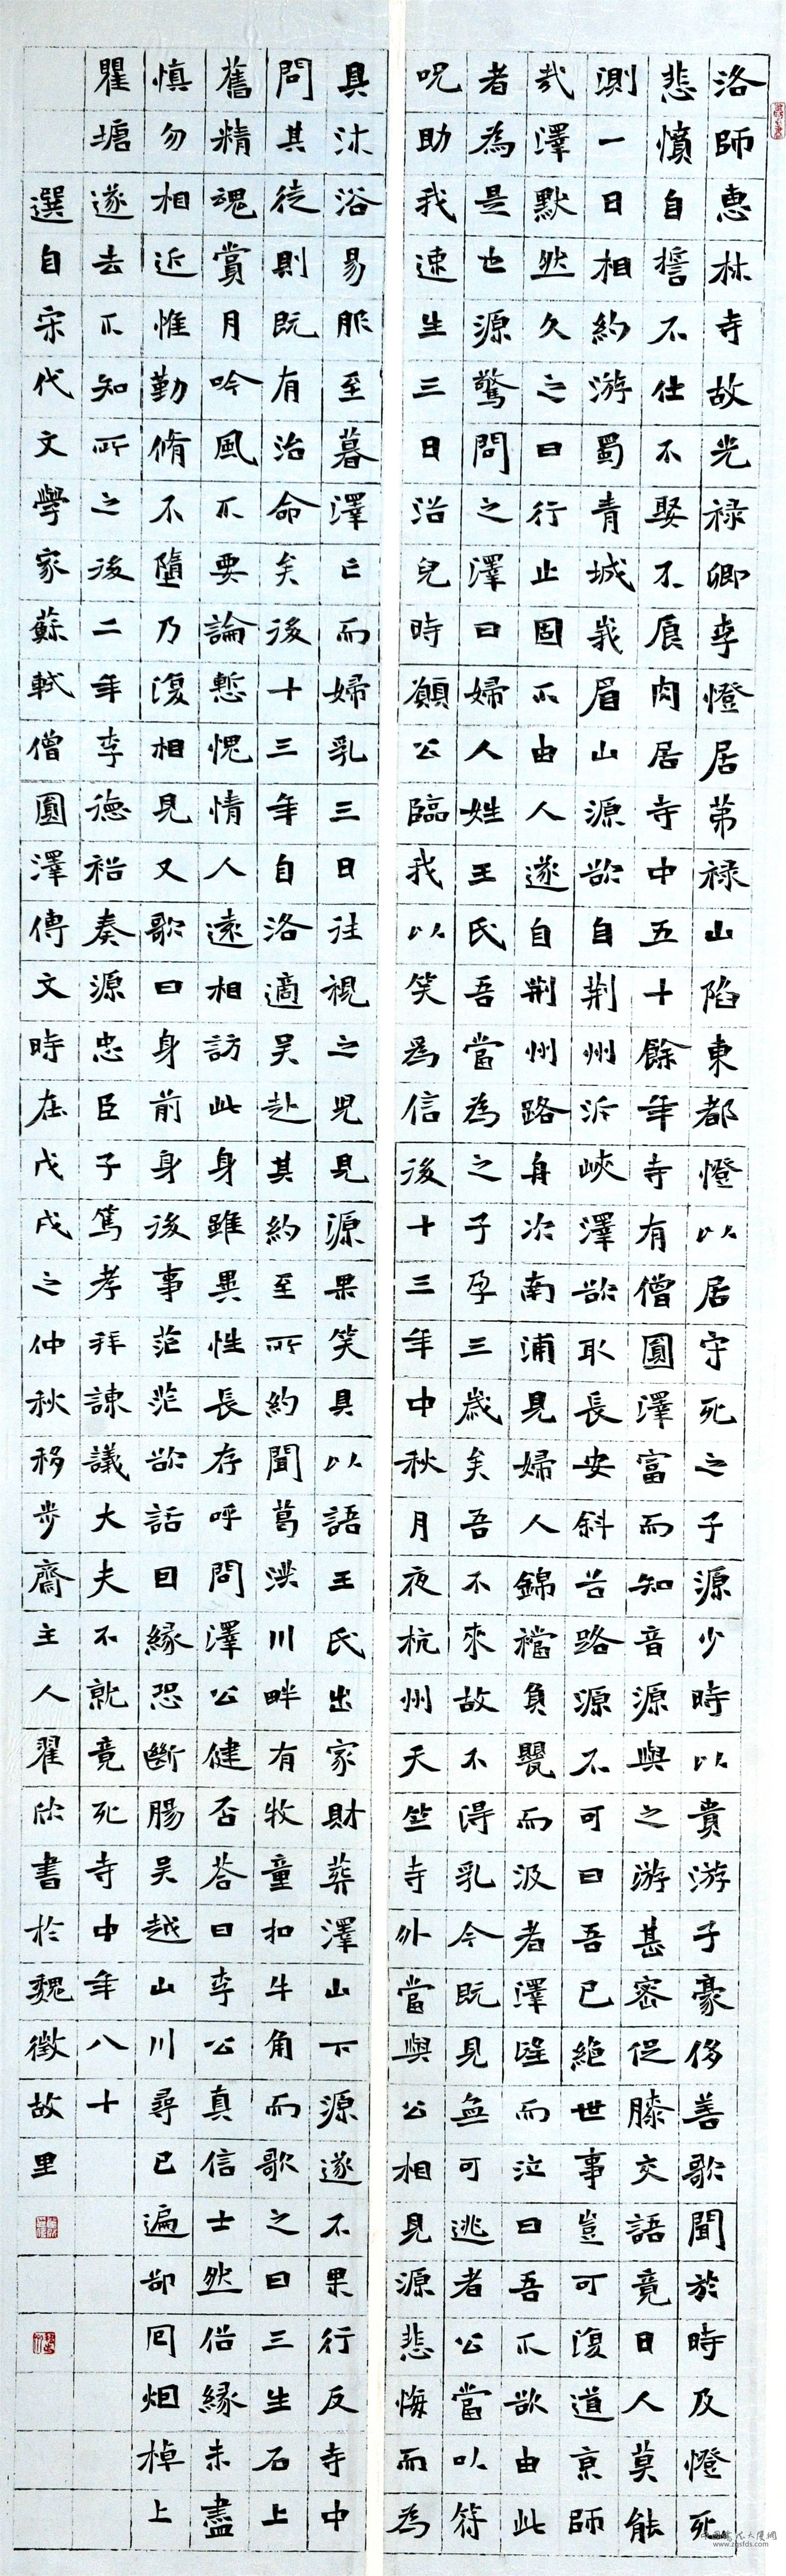 洛師惠林寺故光禄卿李憕居第禄山陷東都憕以居守死之子源少時以貴游子豪侈善歌聞於時及憕死
悲憤自誓不仕不娶不食肉居寺中五十餘年寺有僧圓澤富而知音源與之游甚密促膝交語竟日人莫能
測一日相約游蜀青城峩眉山源欲自荆州泝峽澤欲取長安斜谷路源不可曰吾已絶世事豈可復道京師
哉澤默然久之曰行止固不由人遂自荆州路舟次南浦見婦人錦襠負甖而汲者澤望而泣曰吾不欲由此
者為是也源驚問之澤曰婦人姓王氏吾當為之子孕三歲矣吾不來故不得乳今既見無可逃者公當以符
呪助我速生三日浴兒時願公臨我以笑為信後十三年中秋月夜杭州天竺寺外當與公相見源悲悔而為
具沐浴易服至暮澤亡而婦乳三日往視之兒見源果笑具以語王氏出家財葬澤山下源遂不果行反寺中
問其徒則既有治命矣後十三年自洛適吳赴其約至所約聞葛洪川畔有牧童扣牛角而歌之曰三生石上
舊精魂賞月吟風不要論慙愧情人遠相訪此身雖異性長存呼問澤公健否荅曰李公真信士然俗緣未盡
慎勿相近惟勤脩不墮乃復相見又歌曰身前身後事茫茫欲話因緣恐斷腸吳越山川尋已遍却回烟棹上
瞿塘遂去不知所之後二年李德裕奏源忠臣子篤孝拜諫議大夫不就竟死寺中年八十
選自宋代文學家蘇軾僧圓澤傳文時在戊戌之仲秋移步齋主人翟欣書於魏徵故里
www.zgsfds.com